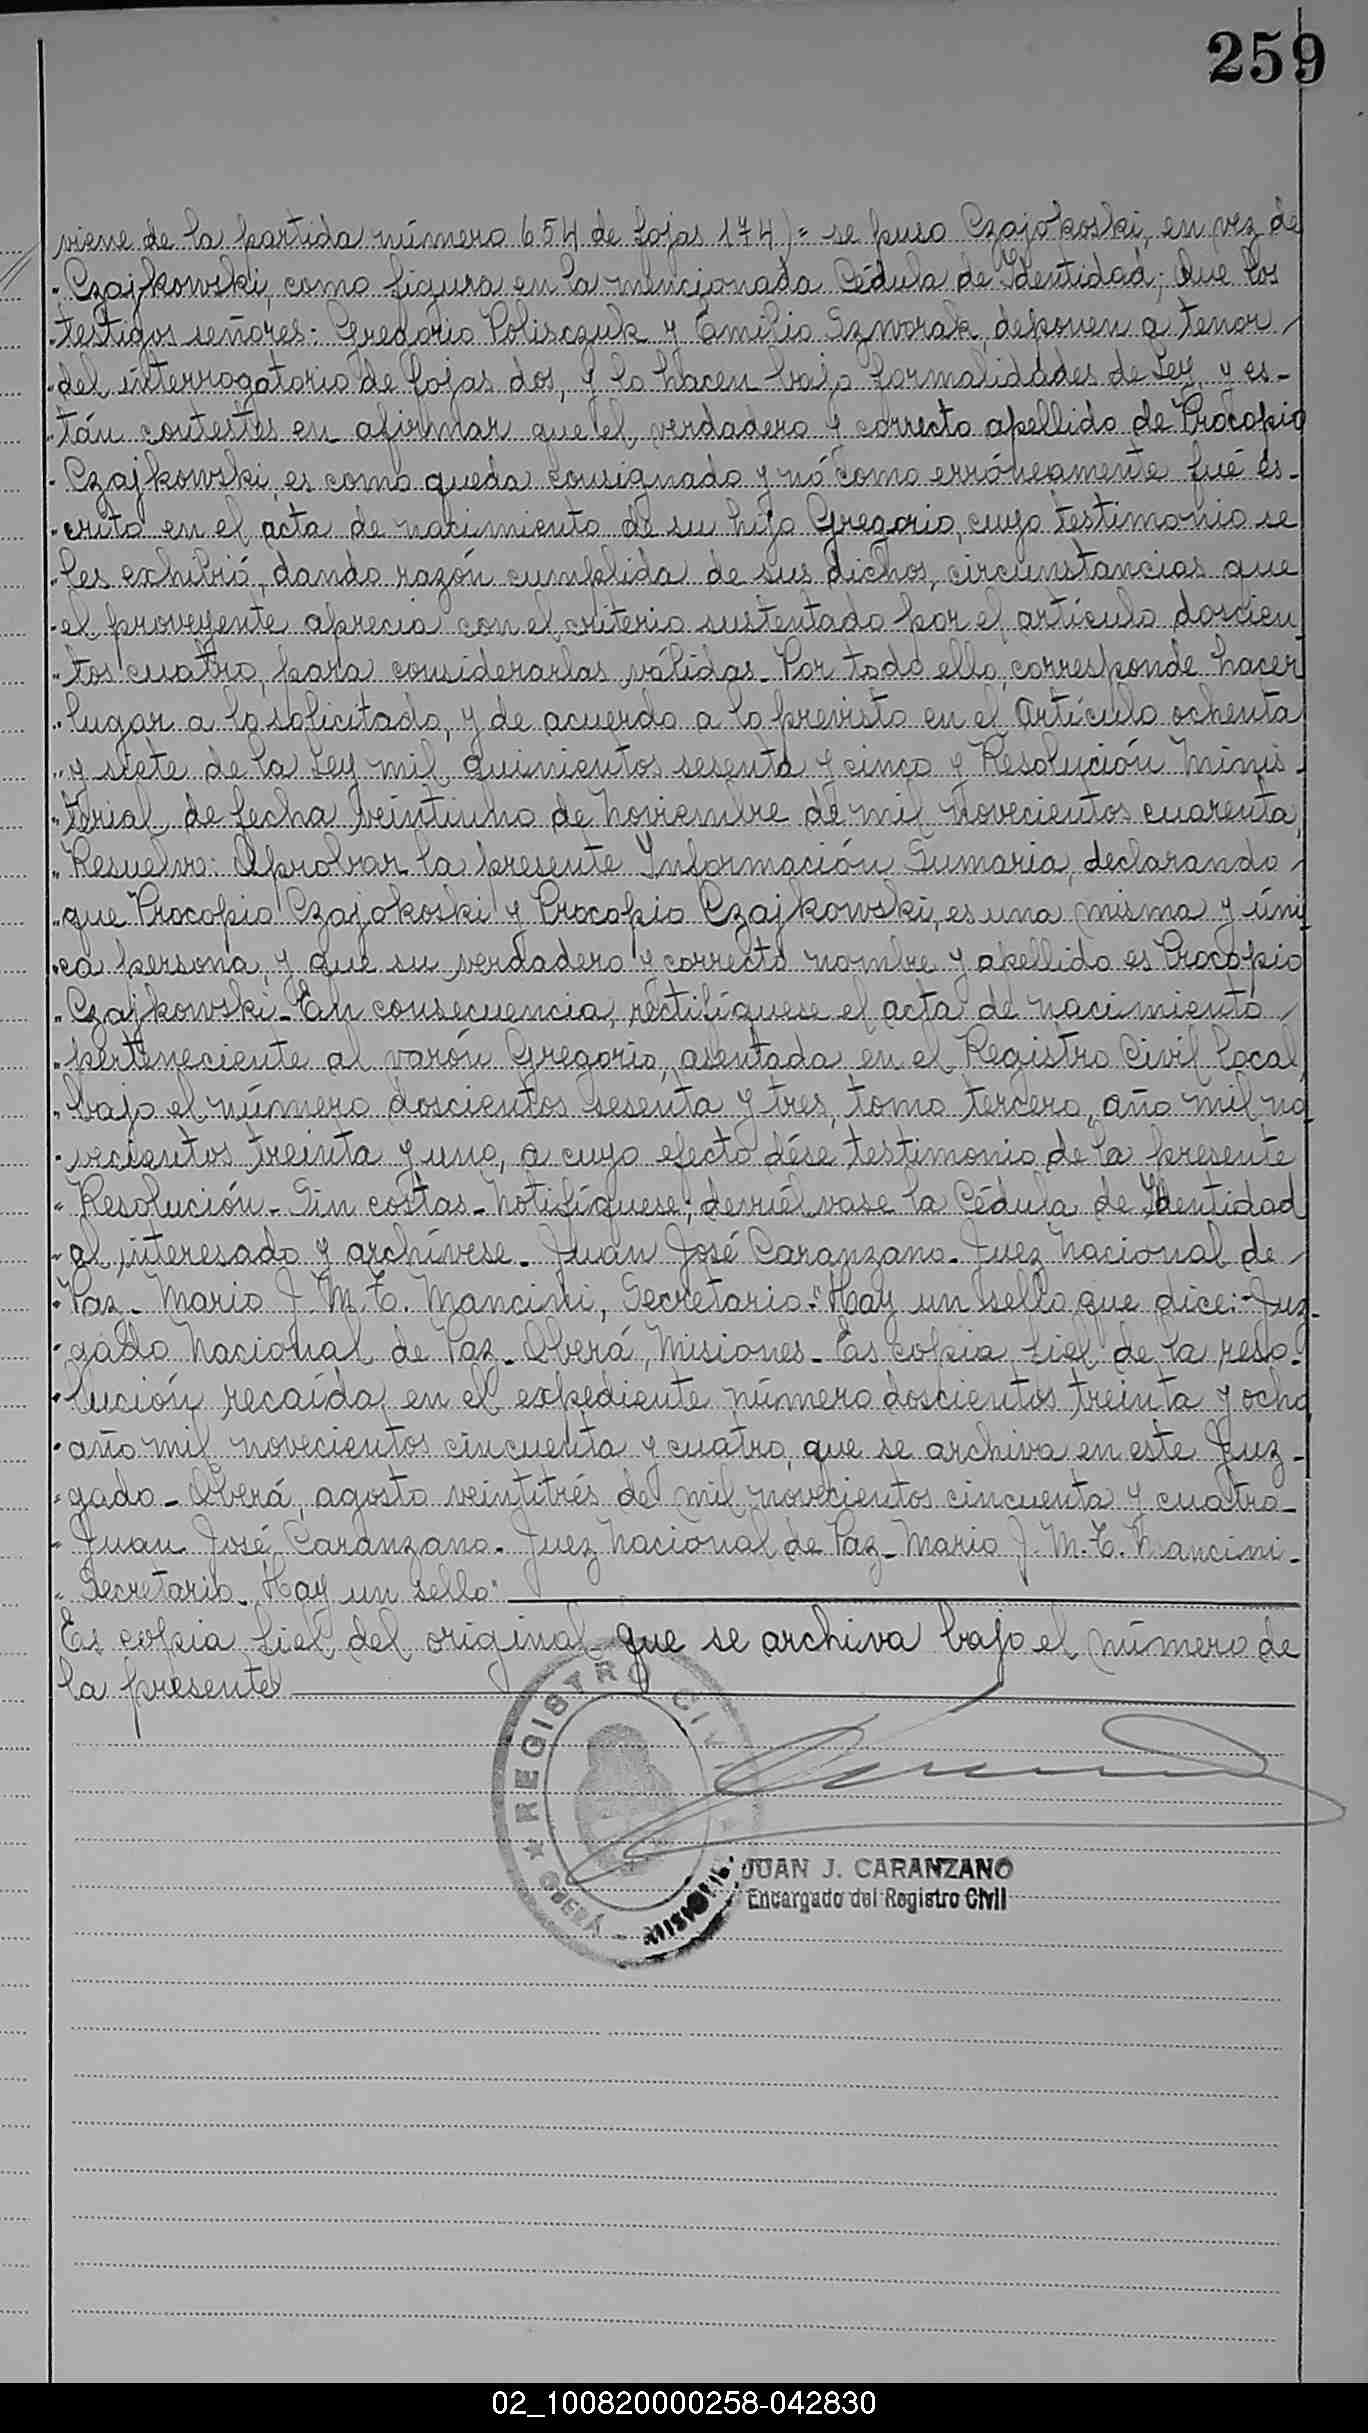 259
viene de la partida número 654 de fojas 174)= se puso Czajokoski, en vez de
" Czajkowski, como figura en la mencionada Cédula de Identidad; Que los
" testigos señores: Gregorio Polisczuk y Emilio Szworak, deponen a tenor
" del interrogatorio de fojas dos, y lo hacen bajo formalidades de Ley, y es-
" tán contestes en afirmar que el verdadero y correcto apellido de Procopio
" Czajkowski, es como queda consignado y nó como erróneamente fué es-
" crito en el acta de nacimiento de su hijo Gregorio, cuyo testimonio se
" les exhibió, dando razón cumplida de sus dichos, circunstancias que
" el proveyente aprecia con el criterio sustentado por el artículo doscien
" tos cuatro, para considerarlas válidas_ Por todo ello, corresponde hacer
" lugar a lo solicitado, y de acuerdo a lo previsto en el Artículo ochenta
" y siete de la Ley mil quinientos sesenta y cinco y Resolución Minis
" terial de fecha veintiuno de Noviembre de mil novecientos cuarenta,
" Resuelvo: Aprobar la presente Información Sumaria, declarando
" que Procopio Czajokoski y Procopio Czajkowski, es una misma y úni
" ca persona, y que su verdadero y correcto nombre y apellido es Procopio
" Czajkowski_ En consecuencia, rectifíquese el acta de nacimiento
" perteneciente al varón Gregorio, asentada en el Registro Civil local,
" bajo el número doscientos sesenta y tres, tomo tercero, año mil no
" vecientos treinta y uno, a cuyo efecto dése testimonio de la presente
" Resolución_ Sin costas_ Notifíquese; devuélvase la Cédula de Identidad
" al interesado y archívese_ Juan José Caranzano_ Juez Nacional de
" Paz_ Mario J. M. T. Mancini, Secretario." Hay un sello que dice: Juz-
" gado Nacional de Paz_ Oberá, Misiones_ Es copia fiel de la reso-
" lución recaída en el expediente número doscientos treinta y ocho
" año mil novecientos cincuenta y cuatro, que se archiva en este Juz-
" gado_ Oberá, agosto veintitrés de mil novecientos cincuenta y cuatro_
" Juan José Caranzano_ Juez Nacional de Paz_ Mario J. M. T. Mancini_
" Secretario_ Hay un sello"
Es copia fiel del original que se archiva bajo el número de
la presente
REGISTRO CIVIL
OBERÁ MISIONES
JUAN J. CARANZANO
Encargado del Registro Civil
02_100820000258-042830